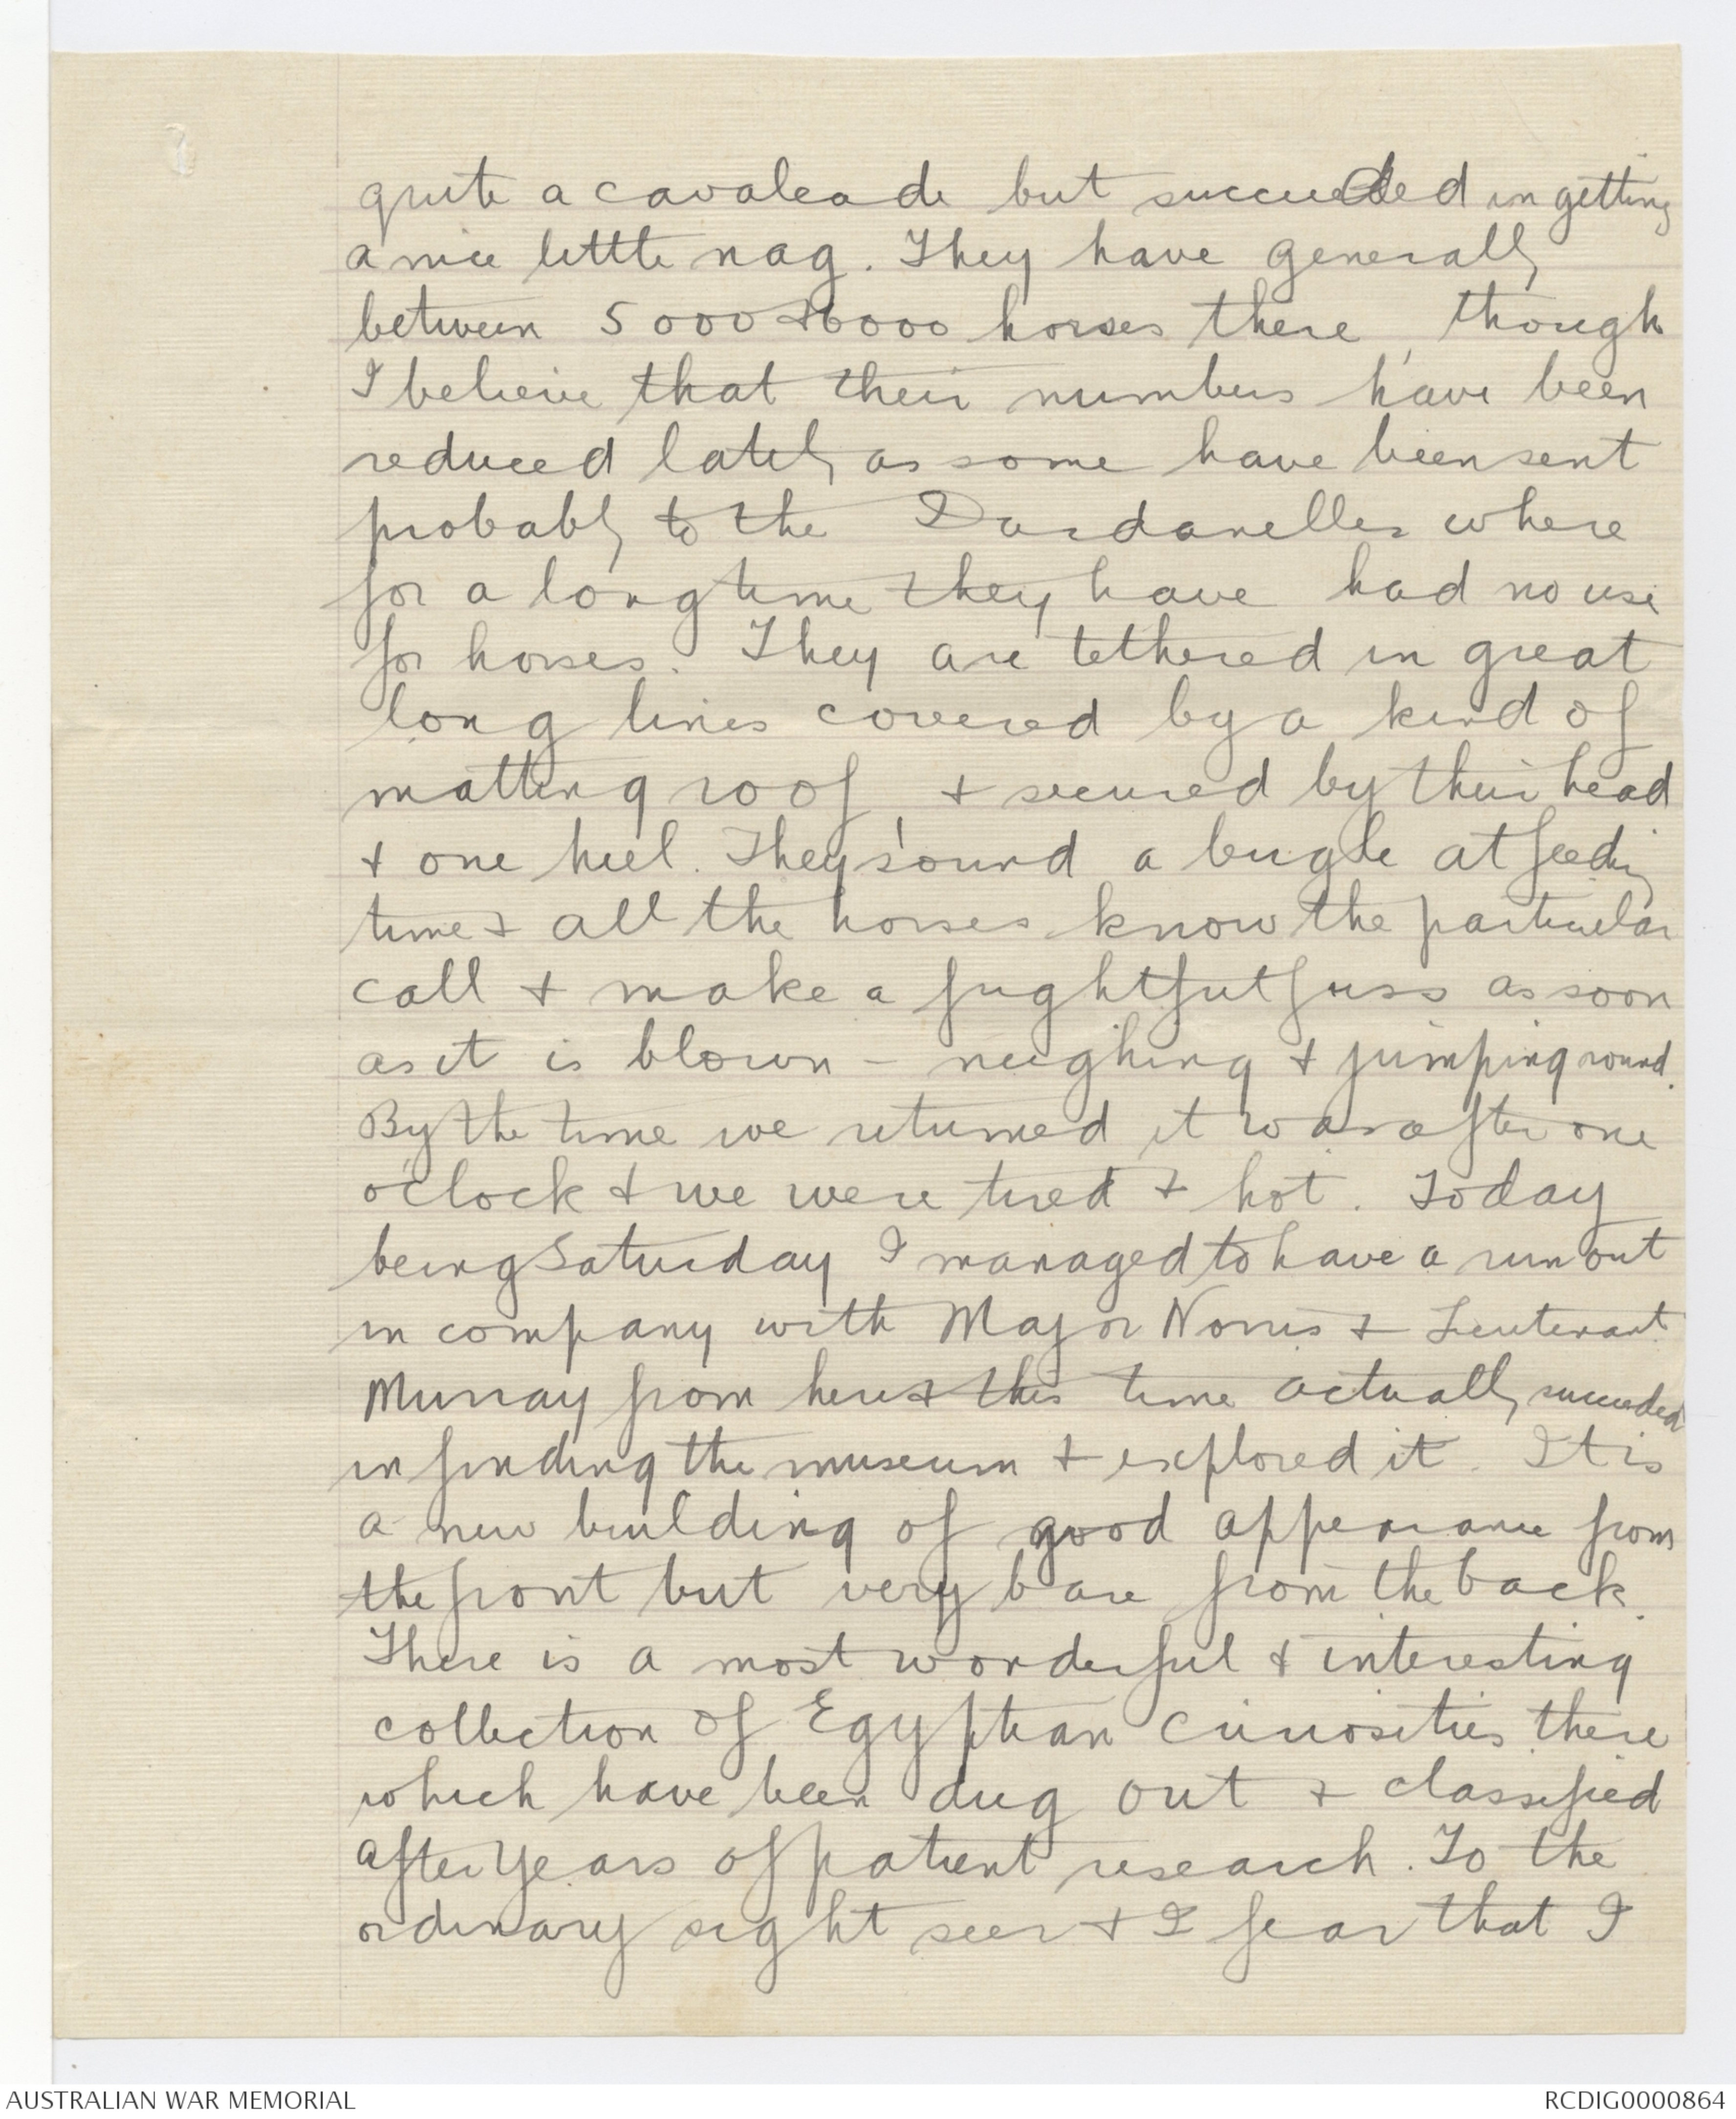 quite a cavalcade but succeeded in getting
a nice little nag. They have generally
between 5000 & 6000 horses there, though
I believe that their numbers have been
reduced lately as some have been sent
probably to the Dardanelles where
for a long time they have had no use
for horses. They are tethered in great
long lines covered by a kind of
matting roof, & secured by their head
& one heel. They sound a bugle at feeding
time & all the horses know the particular
call & make a frightful fuss as soon
as it is blown - neighing & jumping round.
By the time we returned it was after one
o'clock & we were tired & hot. Today
being Saturday I managed to have a run out
in company with Major Norris & Lieutenant
Murray from here & this time actually succeeded
in finding the museum & explored it. It is
a new building of good appearance from
the front but very bare from the back.
There is a most wonderful & interesting
collection of Egyptian curiosities there
which have been dug out & classified
after years of patient research. To the
ordinary sight seer & I fear that I
AUSTRALIAN WAR MEMORIAL
RCDIG0000864